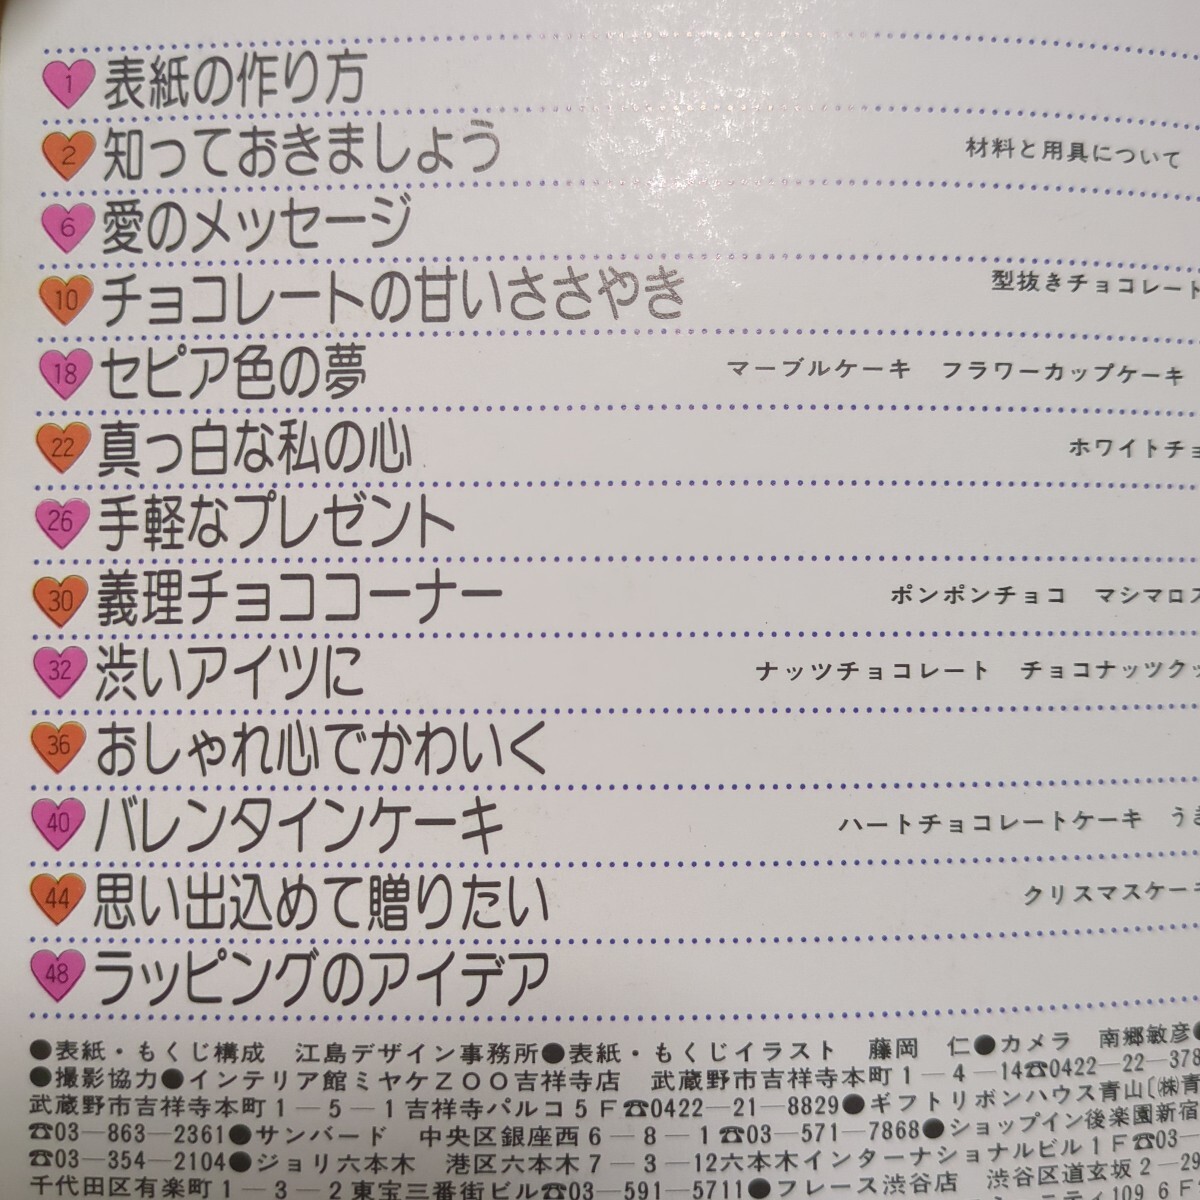 1 表紙の作り方
2 知っておきましょう 材料と用具について
6 愛のメッセージ
10 チョコレートの甘いささやき 型抜きチョコレート
18 セピア色の夢 マーブルケーキ フラワーカップケーキ
22 真っ白な私の心 ホワイトチョ
26 手軽なプレゼント
30 義理チョココーナー ポンポンチョコ マシマロス
32 渋いアイツに ナッツチョコレート チョコナッツクッ
36 おしゃれ心でかわいく
40 バレンタインケーキ ハートチョコレートケーキ うさ
44 思い出込めて贈りたい クリスマスケーキ
48 ラッピングのアイデア
●表紙・もくじ構成 江島デザイン事務所●表紙・もくじイラスト 藤岡 仁●カメラ 南郷敏彦●
●撮影協力●インテリア館ミヤケZOO吉祥寺店 武蔵野市吉祥寺本町1—4—14☎0422—22—378
武蔵野市吉祥寺本町1—5—1吉祥寺パルコ5F☎0422—21—8829●ギフトリボンハウス青山〔㈱青
☎03—863—2361●サンバード 中央区銀座西6—8—1☎03—571—7868●ショップイン後楽園新宿
☎03—354—2104●ジョリ六本木 港区六本木7—3—12六本木インターナショナルビル1F☎03—
千代田区有楽町1—3—2東宝三番街ビル☎03—591—5711●フレース渋谷店 渋谷区道玄坂2—29
09 6F